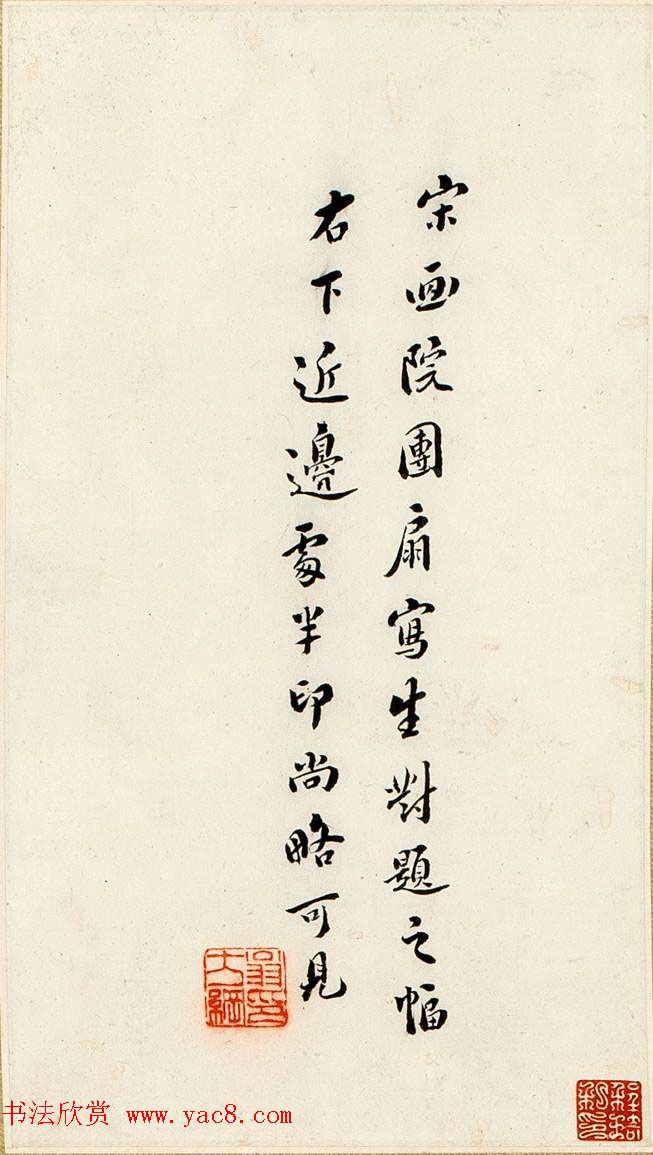 宋画院團扇寫生對題之幅
右下近邊處半印尚略可見
翁方大綱
书法欣赏 www.yac8.com
程琦